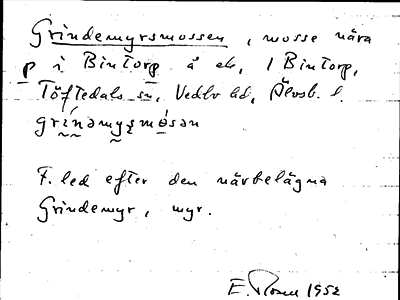 Grindemyrsmossen, mosse nära
p i Bintorp å ek, 1 Bintorp,
Töftedals sn, Vedbo hd, Älvsb. l.
grínəmyʂmòsən
F. led efter den närbelägna
Grindemyr, myr.
E. Rosell 1952